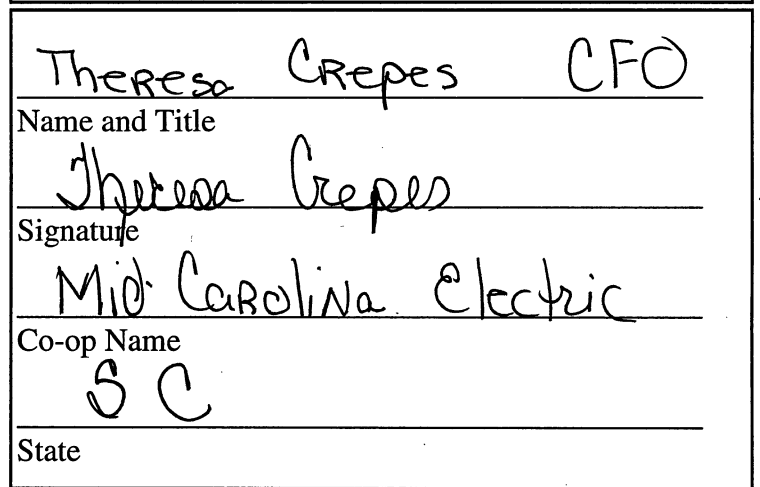 Theresa Crepes CFO
Name and Title
Theresa Crepes
Signature
Mid-Carolina Electric
Co-op Name
SC
State